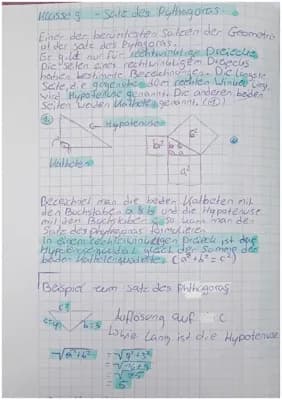 Klasse 9 - Satz des Pythagoras
Einer der berühmtesten Sätzen der Geometrie
ist der Satz des Pytagoras.
Er gilt nur für rechtwinklige Dreiecke
Die Seiten eines rechtwinkligen Dreiecks
haben bestimmte Bezeichnungen. Die längste
Seite, die gegenüber dem rechten Winkel liegt,
wird Hypotenuse genannt. Die anderen beiden
Seiten werden Katheten genannt.
Hypotenuse
Katheten
b²
a²
Bezeichnet man die beiden Katheten mit
den Buchstaben a & b und die Hypotenuse
mit den Buchstaben c, so kann man den
Satz des phytagoras formulieren
In einem rechtwinkligen Dreieck ist das
Hypotenusenquadrat gleich der Summe der
beiden Kathetenquadrate. (a² + b² = c²)
Beispiel zum Satz des Phythagoras
c?
Auflösung auf c
Wie lang ist die Hypotenuse
√a²+b² = √4²+3²
= √16+9
= √25
5